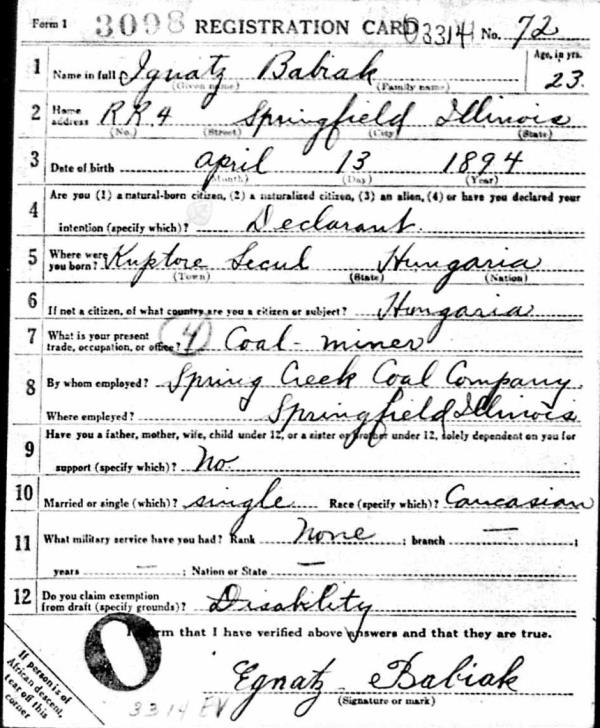 Form 1 3098 REGISTRATION CARD 3314 No. 72
1 Name in full Ignatz Babiak Age, in yrs. 23
(Given name) (Family name)
2 Home address R.R.4 Springfield Illinois
(No.) (Street) (City) (State)
3 Date of birth April 13 1894
(Month) (Day) (Year)
4 Are you (1) a natural-born citizen, (2) a naturalized citizen, (3) an alien, (4) or have you declared your
intention (specify which)? Declarant.
5 Where were you born? Kuptore Secul Hungaria
(Town) (State) (Nation)
6 If not a citizen, of what country are you a citizen or subject? Hungaria
7 What is your present trade, occupation, or office? 4 Coal-miner
8 By whom employed? Spring Creek Coal Company.
Where employed? Springfield Illinois
9 Have you a father, mother, wife, child under 12, or a sister or brother under 12, solely dependent on you for
support (specify which)? No.
10 Married or single (which)? single Race (specify which)? Caucasian
11 What military service have you had? Rank None ; branch — ;
years — ; Nation or State —
12 Do you claim exemption from draft (specify grounds)? Disability
I affirm that I have verified above answers and that they are true.
If person is of African descent, tear off this corner
Egnatz Babiak
(Signature or mark)
3314 EV